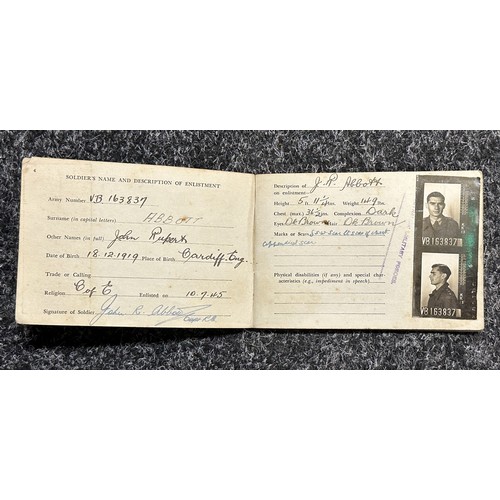 SOLDIER'S NAME AND DESCRIPTION OF ENLISTMENT
Army Number VB 163837
Surname (in capital letters) ABBOTT
Other Names (in full) John Rupert
Date of Birth 18.12.1919 Place of Birth Cardiff Eng.
Trade or Calling
Religion C of E Enlisted on 10.7.45
Signature of Soldier John R. Abbott
Description of J. R. Abbott
on enlistment
Height 5 ft. 11 Weight
Chest (max.) 36½ ins. Complexion Dark
Eyes Dk Brown Hair Dk Brown
Marks or Scars
Physical disabilities (if any) and special char-
acteristics (e.g., impediment in speech)
VB163837
VB163837